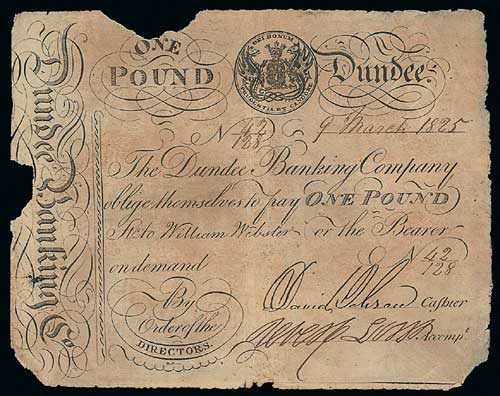 Dundee Banking Co
ONE
POUND
DEI DONUM
PRUDENTIA ET CANDORE
Dundee.
No 42/128 9 March 1825
The Dundee Banking Company
oblige themselves to pay ONE POUND
Str to William Webster or the Bearer
on demand
No 42/128
By
Order of the
DIRECTORS.
David Cashier
Accompt.